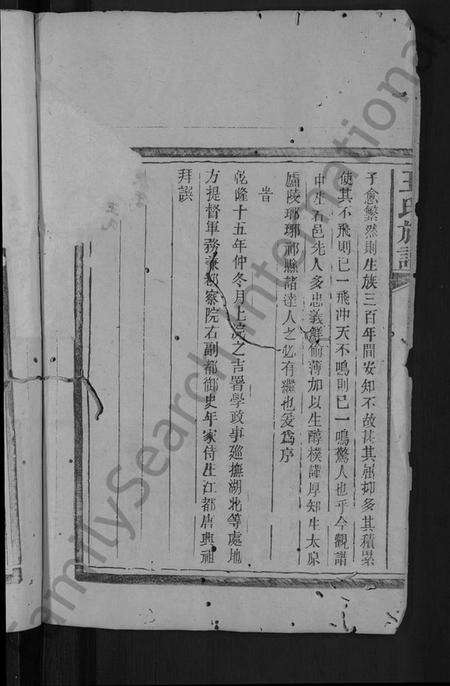 王氏族譜
子愈繁然則生族三百年間安知不故甚其屈抑多其積累
使其不飛則已一飛冲天不鳴則已一鳴驚人也乎今觀譜
中生右邑先人多忠義鮮偷薄加以生醇樸謹厚知生太原
瑯琊祁縣諸達人之必有徵也爰為序
旹
乾隆十五年仲冬月上浣之吉署學政事巡撫湖北等處地
方提督軍務兼都察院右副都御史年家侍生江都唐興祖
拜譔
FamilySearch International